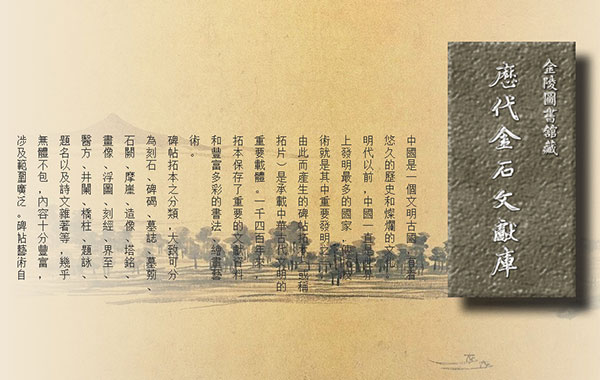 金陵圖書舘藏
歷代金石文獻庫
中國是一個文明古國，有着
悠久的歷史和燦爛的文化
明代以前，中國一直是世界
上發明最多的國家，
術就是其中重要發明
由此而產生的碑帖拓本（或稱
拓片）是承載中華古代文明的
重要載體。一千四百年來
拓本保存了重要的文獻資料
和豐富多彩的書法、繪畫藝
術。
碑帖拓本之分類，大致可分
為刻石、碑碣、墓誌、墓莂、
石闕、摩崖、造像、塔銘、
畫像、浮圖、刻經、界至、
醫方、井闌、橋柱、題詠、
題名以及詩文雜著等，幾乎
無體不包，內容十分豐富，
涉及範圍廣泛。碑帖藝術自